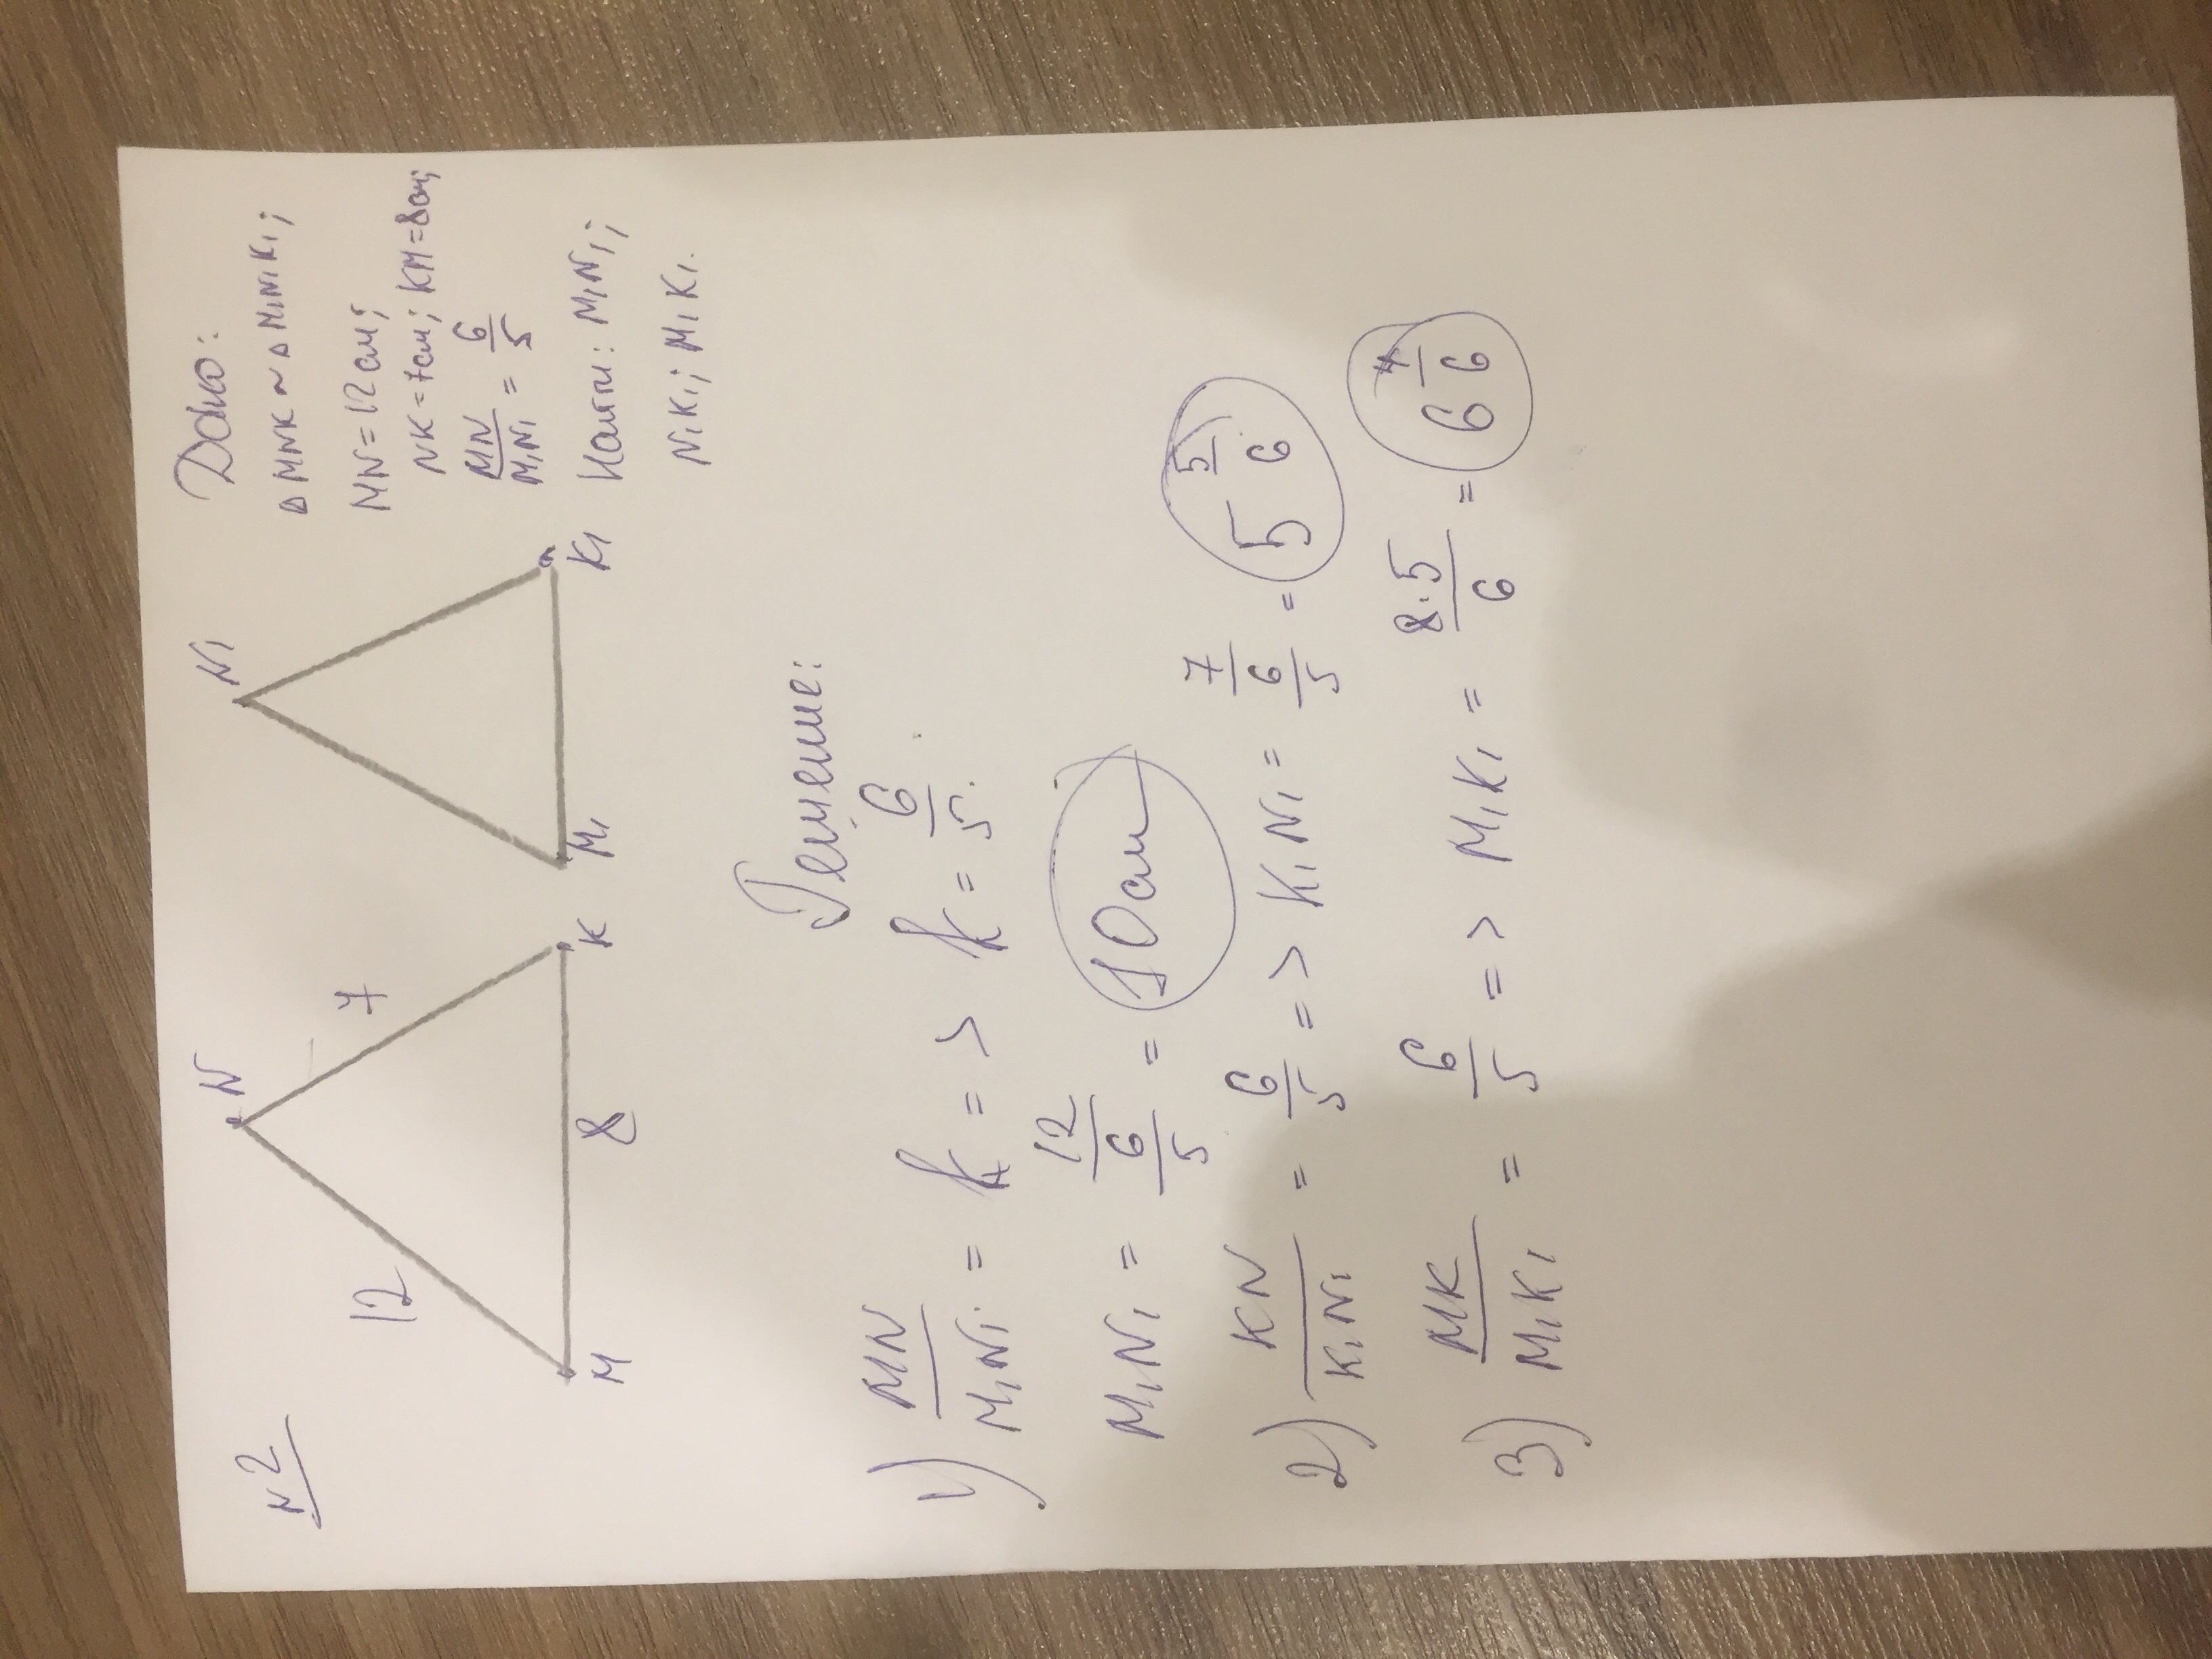 N2
N
N1
12
7
M
8
K
M1
K1
Дано:
△MNK ~ △M1N1K1;
MN = 12 см;
NK = 7см; KM = 8см;
MN/M1N1 = 6/5
Найти: M1N1;
N1K1; M1K1.
Решение:
1) MN/M1N1 = k => k = 6/5.
M1N1 = 12/(6/5) = 10см
2) KN/K1N1 = 6/5 => K1N1 = 7/(6/5) = 5 5/6
3) MK/M1K1 = 6/5 => M1K1 = 8·5/6 = 6 4/6